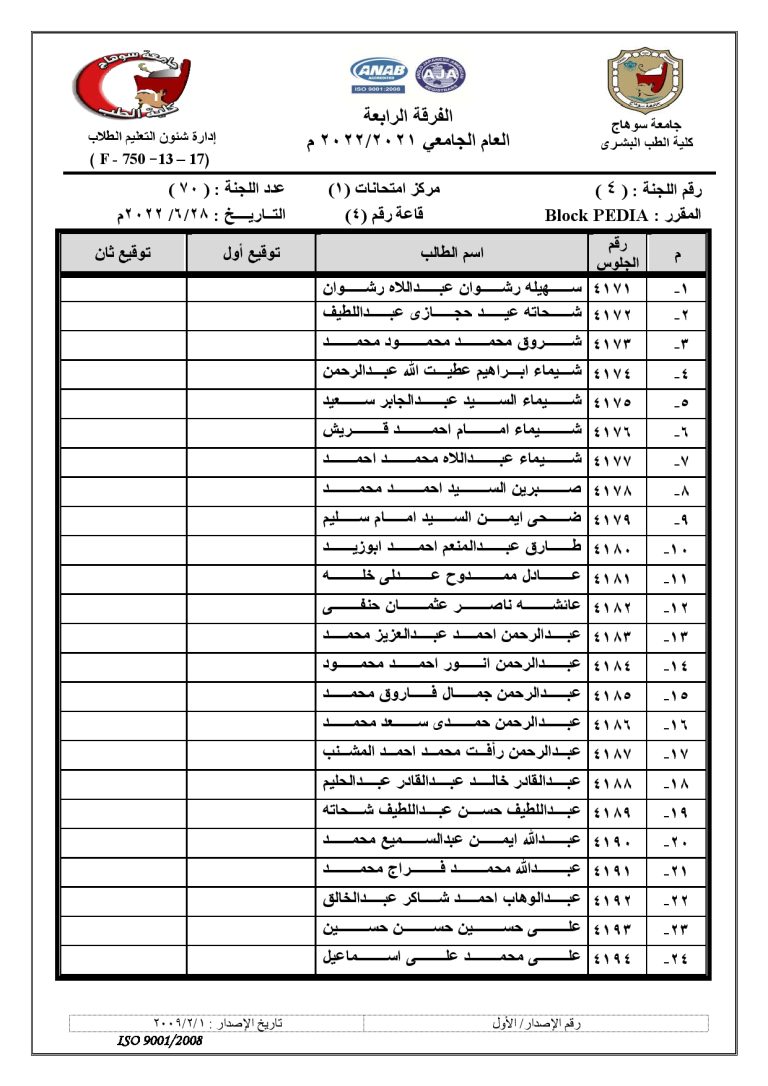 جامعة سوهاج
كلية الطب
ANAB
ACCREDITED
ISO 9001:2008
AJA
جامعة سوهاج
كلية الطب البشرى
الفرقة الرابعة
العام الجامعي ٢٠٢٢/٢٠٢١ م
إدارة شئون التعليم الطلاب
( F - 750 –13 – 17)
رقم اللجنة : ( ٤ ) مركز امتحانات (١) عدد اللجنة : ( ٧٠ )
المقرر : Block PEDIA قاعة رقم (٤) التــاريـــخ : ٢٠٢٢/٦/٢٨م
م رقم الجلوس اسم الطالب توقيع أول توقيع ثان
١- ٤١٧١ سهيله رشوان عبداللاه رشوان
٢- ٤١٧٢ شحاته عيد حجازى عبداللطيف
٣- ٤١٧٣ شروق محمد محمود محمد
٤- ٤١٧٤ شيماء ابراهيم عطيت الله عبدالرحمن
٥- ٤١٧٥ شيماء السيد عبدالجابر سعيد
٦- ٤١٧٦ شيماء امام احمد قريش
٧- ٤١٧٧ شيماء عبداللاه محمد احمد
٨- ٤١٧٨ صبرين السيد احمد محمد
٩- ٤١٧٩ ضحى ايمن السيد امام سليم
١٠- ٤١٨٠ طارق عبدالمنعم احمد ابوزيد
١١- ٤١٨١ عادل ممدوح عدلى خله
١٢- ٤١٨٢ عائشه ناصر عثمان حنفى
١٣- ٤١٨٣ عبدالرحمن احمد عبدالعزيز محمد
١٤- ٤١٨٤ عبدالرحمن انور احمد محمود
١٥- ٤١٨٥ عبدالرحمن جمال فاروق محمد
١٦- ٤١٨٦ عبدالرحمن حمدى سعد محمد
١٧- ٤١٨٧ عبدالرحمن رأفت محمد احمد المشنب
١٨- ٤١٨٨ عبدالقادر خالد عبدالقادر عبدالحليم
١٩- ٤١٨٩ عبداللطيف حسن عبداللطيف شحاته
٢٠- ٤١٩٠ عبدالله ايمن عبدالسميع محمد
٢١- ٤١٩١ عبدالله محمد فراج محمد
٢٢- ٤١٩٢ عبدالوهاب احمد شاكر عبدالخالق
٢٣- ٤١٩٣ على حسين حسن حسين
٢٤- ٤١٩٤ على محمد على اسماعيل
رقم الإصدار/ الأول تاريخ الإصدار : ٢٠٠٩/٢/١
ISO 9001/2008